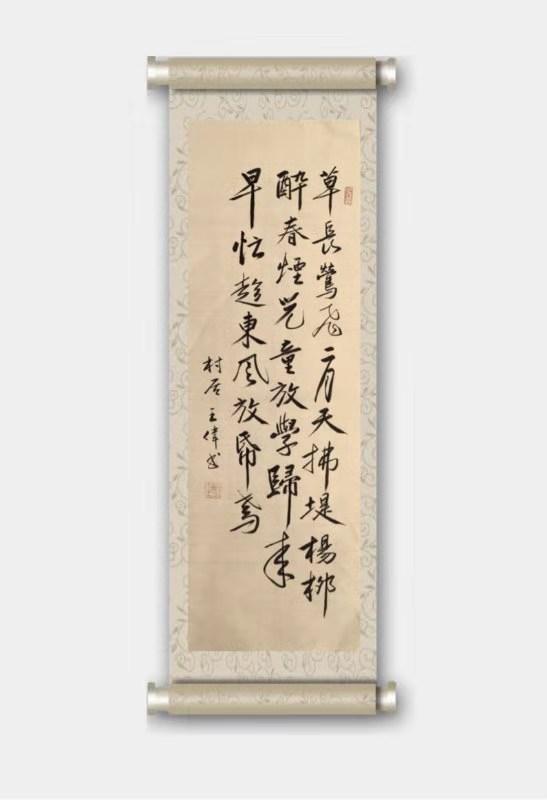 草長鶯飛二月天拂堤楊柳
醉春煙兒童放學歸來
早忙趁東風放帋鳶
村居 王偉書